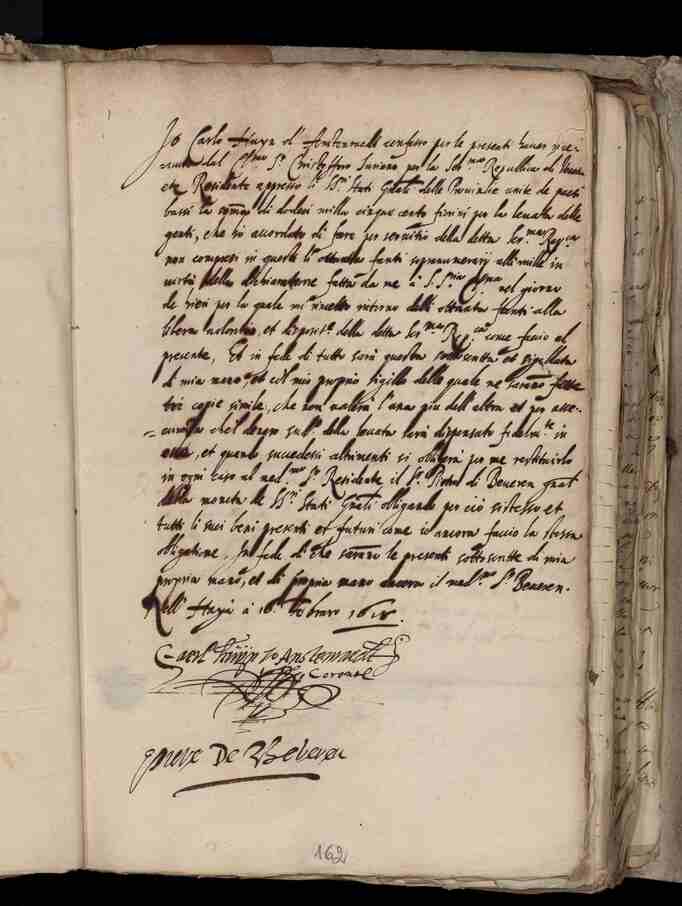 Io Carlo Huyn d' Amstenraedt confesso per le presenti haver rice-
vuto dal Cl.mo S.r Christofforo Suriano per la Ser.ma Republica di Vene-
tia Residente appresso li SS.ri Stati Gnali delle Provincie unite de paesi
bassi la somma di dodeci mille cinque cento fiorini per la levata delle
genti, che hò accordato di fare per servitio della detta Ser.ma Rep.ca
non compresi in queste li ottanta fanti sopranumerarij alli mille in
virtù della dechiaratione fatta da me à S. S.ria Cl.ma nel giorno
de hieri per la quale mi rimetto intorno delli ottanta fanti alla
libera volontà, et dispositi.e della detta Ser.ma Rep.ca come faccio al
presente, Et in fede di tutto sarà questa sottoscritta et sigillata
di mia mano, et col mio proprio sigillo delle quale ne saranno fatte
tre copie simile, che non valerà l'una piu dell' altra et per asse-
curanza che'l denaro sud.o della levata sarà dispensato fidelm.te in
essa, et quando succedesse altrimenti si obligerà per me restituirlo
in ogni caso al med.mo S.r Residente il S.r di Beveren gnal
della moneta de SS.ri Stati Gnali obligando per ciò sè stesso et
tutti li suoi beni presenti et futuri come io ancora faccio la stessa
obligatione, In fede di che saranno le presenti sottoscritte di mia
propria mano, et di propria mano ancora il med.mo S.r Beveren.
Dell' Haya à 16 Febraro 1618.
Caerl Huijn Amstenraedt
Coronel
De Beveren
162